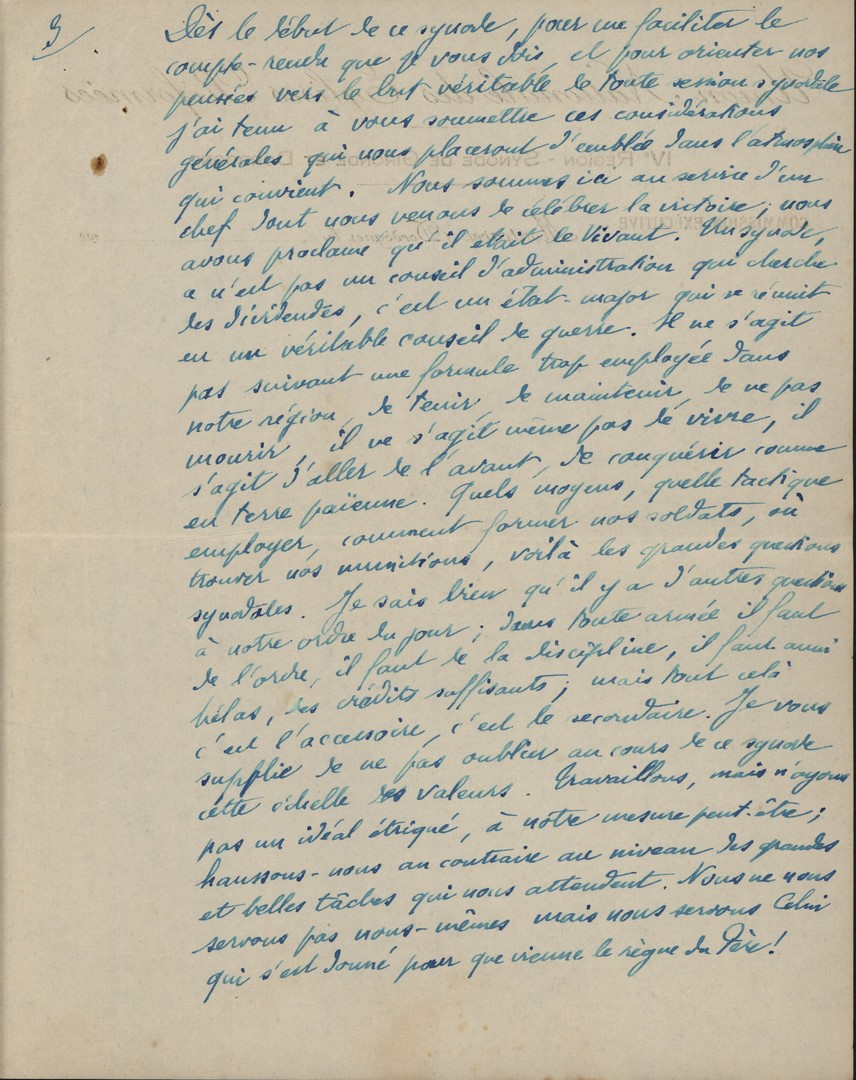 3/
Dès le début de ce synode, pour me faciliter le
compte-rendu que je vous dois, et pour orienter nos
pensées vers le but véritable de toute session synodale
j'ai tenu à vous soumettre ces considérations
générales qui nous placeront d'emblée dans l'atmosphère
qui convient. Nous sommes ici au service d'un
chef dont nous venons de célébrer la victoire; nous
avons proclamé qu'il était le Vivant. Un synode,
ce n'est pas un conseil d'administration qui cherche
des dividendes, c'est un état-major qui se réunit
en un véritable conseil de guerre. Il ne s'agit
pas suivant une formule trop employée dans
notre région, de tenir, de maintenir, de ne pas
mourir, il ne s'agit même pas de vivre, il
s'agit d'aller de l'avant, de conquérir comme
en terre païenne. Quels moyens, quelle tactique
employer, comment former nos soldats, où
trouver nos munitions, voilà les grandes questions
synodales. Je sais bien qu'il y a d'autres questions
à notre ordre du jour; dans toute armée il faut
de l'ordre, il faut de la discipline, il faut aussi
hélas, des crédits suffisants; mais tout celà
c'est l'accessoire, c'est le secondaire. Je vous
supplie de ne pas oublier au cours de ce synode
cette échelle des valeurs. Travaillons, mais n'ayons
pas un idéal étriqué, à notre mesure peut-être;
haussons-nous au contraire au niveau des grandes
et belles tâches qui nous attendent. Nous ne nous
servons pas nous-mêmes mais nous servons Celui
qui s'est donné pour que vienne le règne du Père!